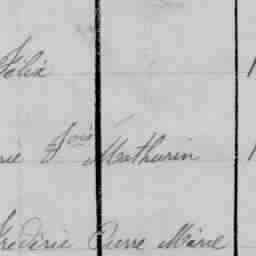 Félix
rie Jose Mathurin
Frédéric Pierre Marie